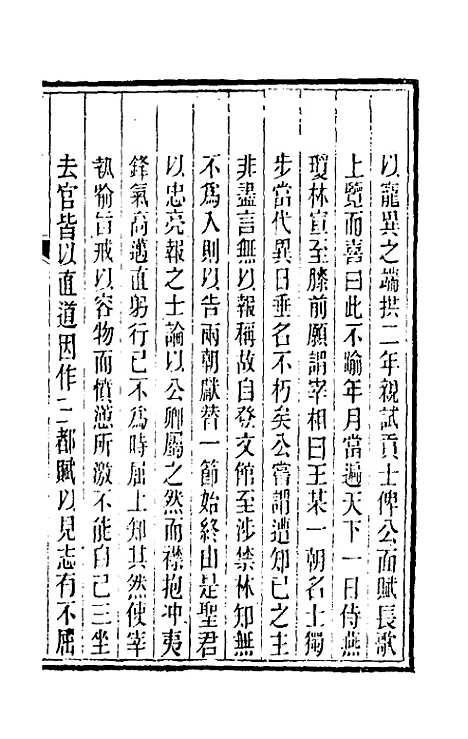 以寵異之端拱二年親試貢士俾公面賦長歌
上覽而喜曰此不踰年月當遍天下一日侍燕
瓊林宣至膝前顧謂宰相曰王某一朝名士獨
步當代異日垂名不朽矣公嘗謂遭知己之主
非盡言無以報稱故自登文館至涉禁林知無
不為入則以告兩朝獻替一節始終由是聖君
以忠亮報之士論以公卿屬之然而襟抱冲夷
鋒氣高邁直躬行已不為時屈上知其然使宰
執喻旨戒以容物而憤懣所激不能自已三坐
去官皆以直道因作三都賦以見志有不屈